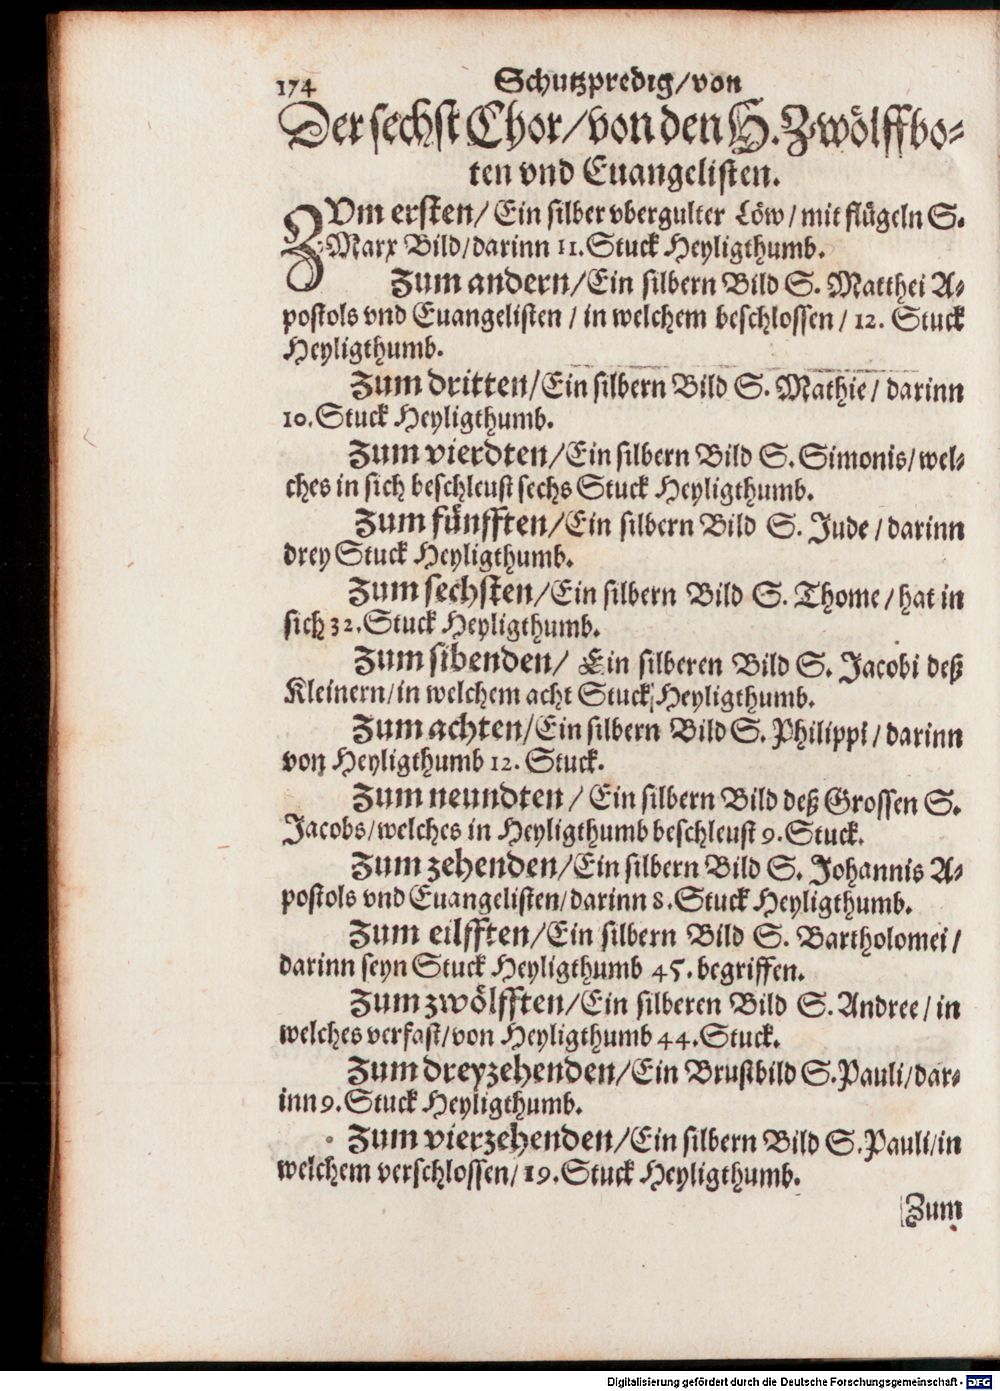 174 Schutzpredig/von
Der sechst Chor/von den H. Zwölffbo-
ten vnd Euangelisten.
ZVm ersten/ Ein silber vbergulter Löw/ mit flügeln S.
Marx Bild/darinn 11. Stuck Heyligthumb.
Zum andern/Ein silbern Bild S. Matthei A-
postols vnd Euangelisten / in welchem beschlossen / 12. Stuck
Heyligthumb.
Zum dritten/Ein silbern Bild S. Mathie/ darinn
10. Stuck Heyligthumb.
Zum vierdten/Ein silbern Bild S. Simonis/wel-
ches in sich beschleust sechs Stuck Heyligthumb.
Zum fünfften/Ein silbern Bild S. Jude / darinn
drey Stuck Heyligthumb.
Zum sechsten/Ein silbern Bild S. Thome / hat in
sich 32. Stuck Heyligthumb.
Zum sibenden/ Ein silberen Bild S. Jacobi deß
Kleinern/in welchem acht Stuck Heyligthumb.
Zum achten/Ein silbern Bild S. Philippi / darinn
von Heyligthumb 12. Stuck.
Zum neundten / Ein silbern Bild deß Grossen S.
Jacobs/welches in Heyligthumb beschleust 9. Stuck.
Zum zehenden/Ein silbern Bild S. Johannis A-
postols vnd Euangelisten/darinn 8. Stuck Heyligthumb.
Zum eilfften/Ein silbern Bild S. Bartholomei /
darinn seyn Stuck Heyligthumb 45. begriffen.
Zum zwölfften/Ein silberen Bild S. Andree / in
welches verfast/von Heyligthumb 44. Stuck.
Zum dreyzehenden/Ein Brustbild S. Pauli/dar-
inn 9. Stuck Heyligthumb.
Zum vierzehenden/Ein silbern Bild S. Pauli/in
welchem verschlossen/ 19. Stuck Heyligthumb.
Zum
Digitalisierung gefördert durch die Deutsche Forschungsgemeinschaft - DFG